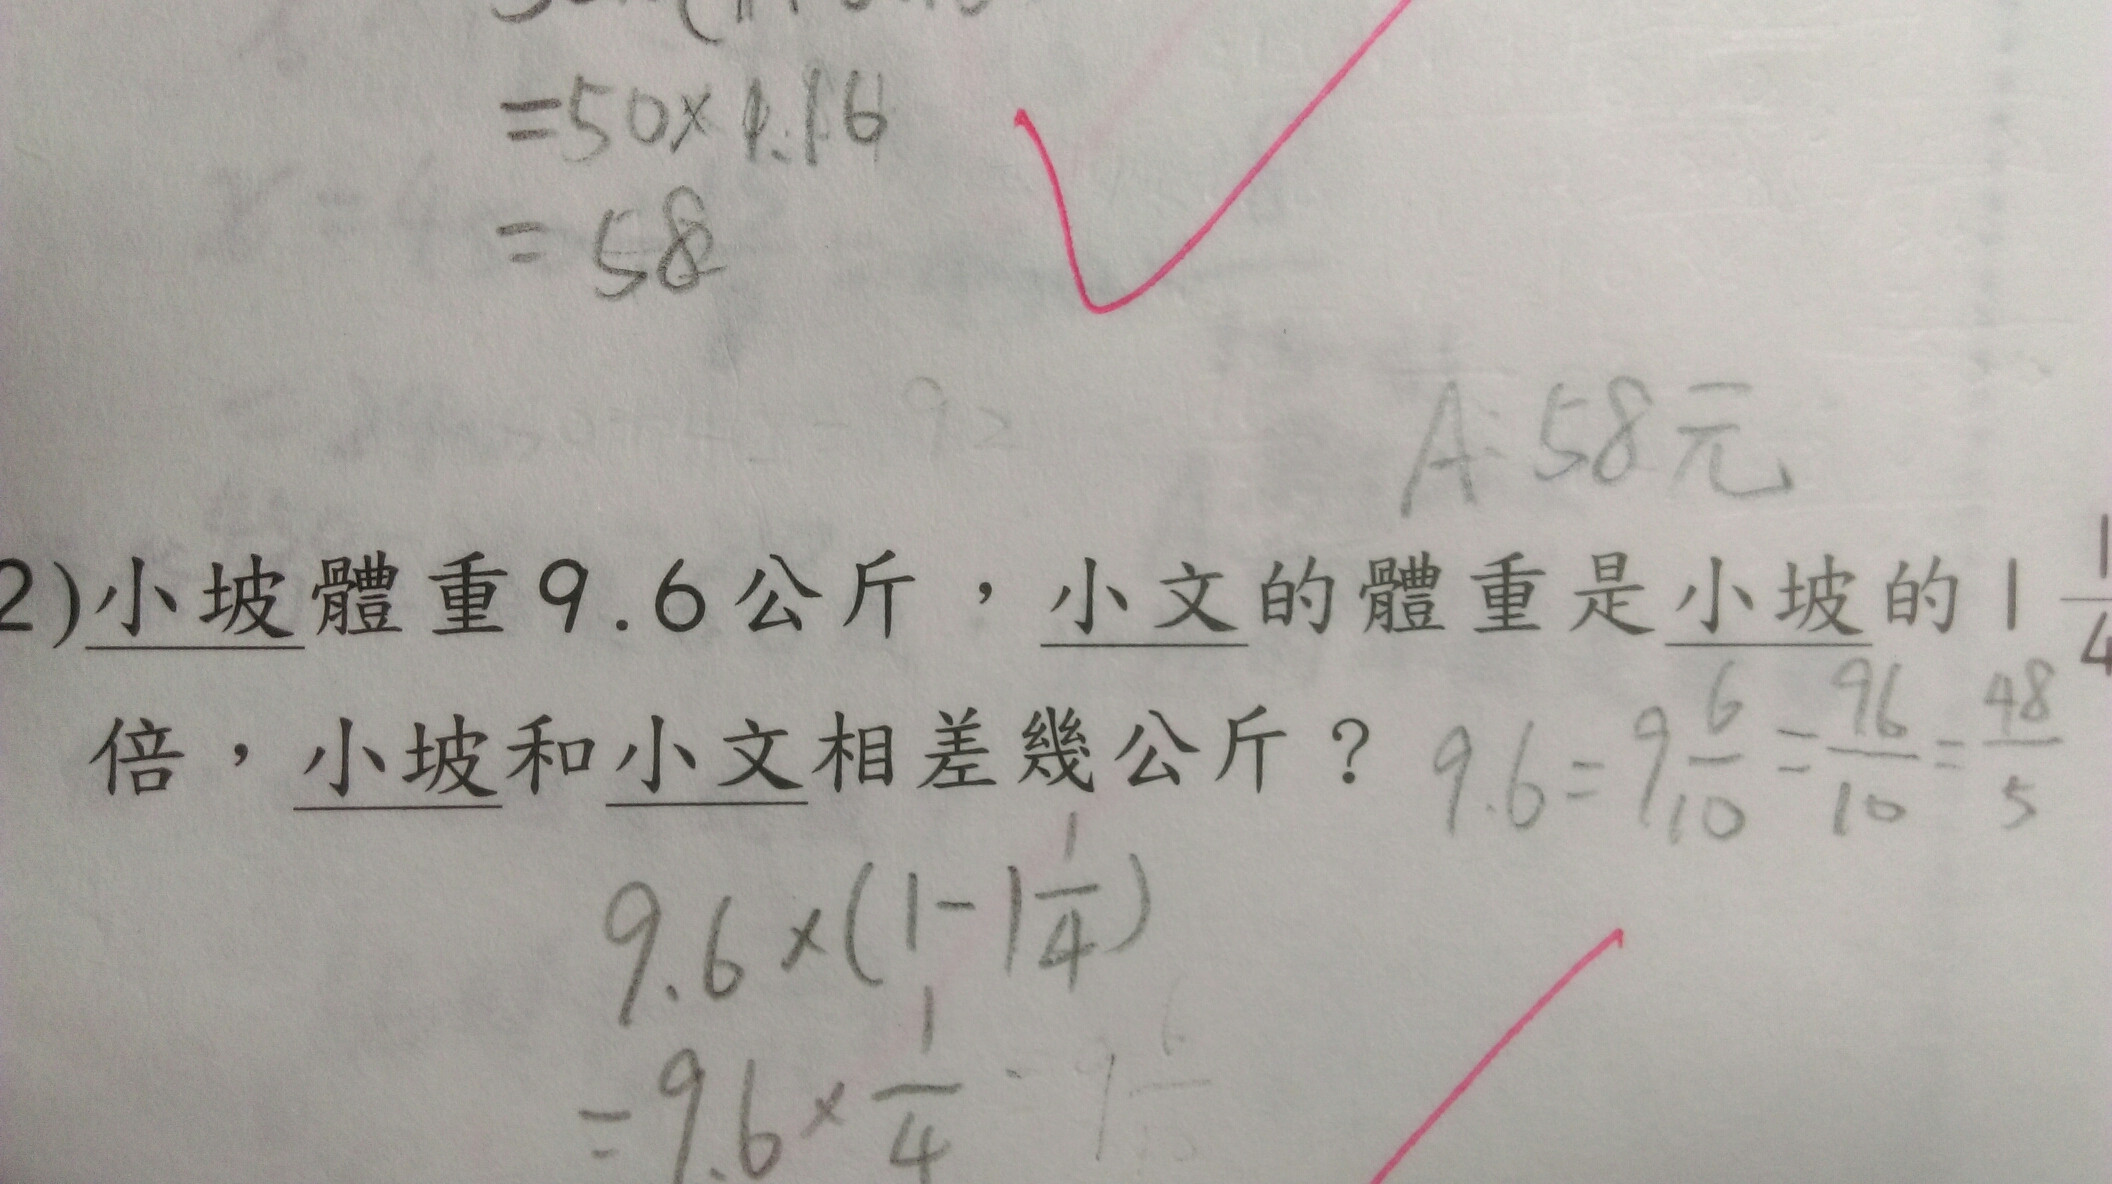 =50×1.16
=58
A:58元
2)小坡體重9.6公斤，小文的體重是小坡的1 1/4
倍，小坡和小文相差幾公斤？
9.6=9 6/10=96/10=48/5
9.6×(1-1 1/4)
=9.6×1/4